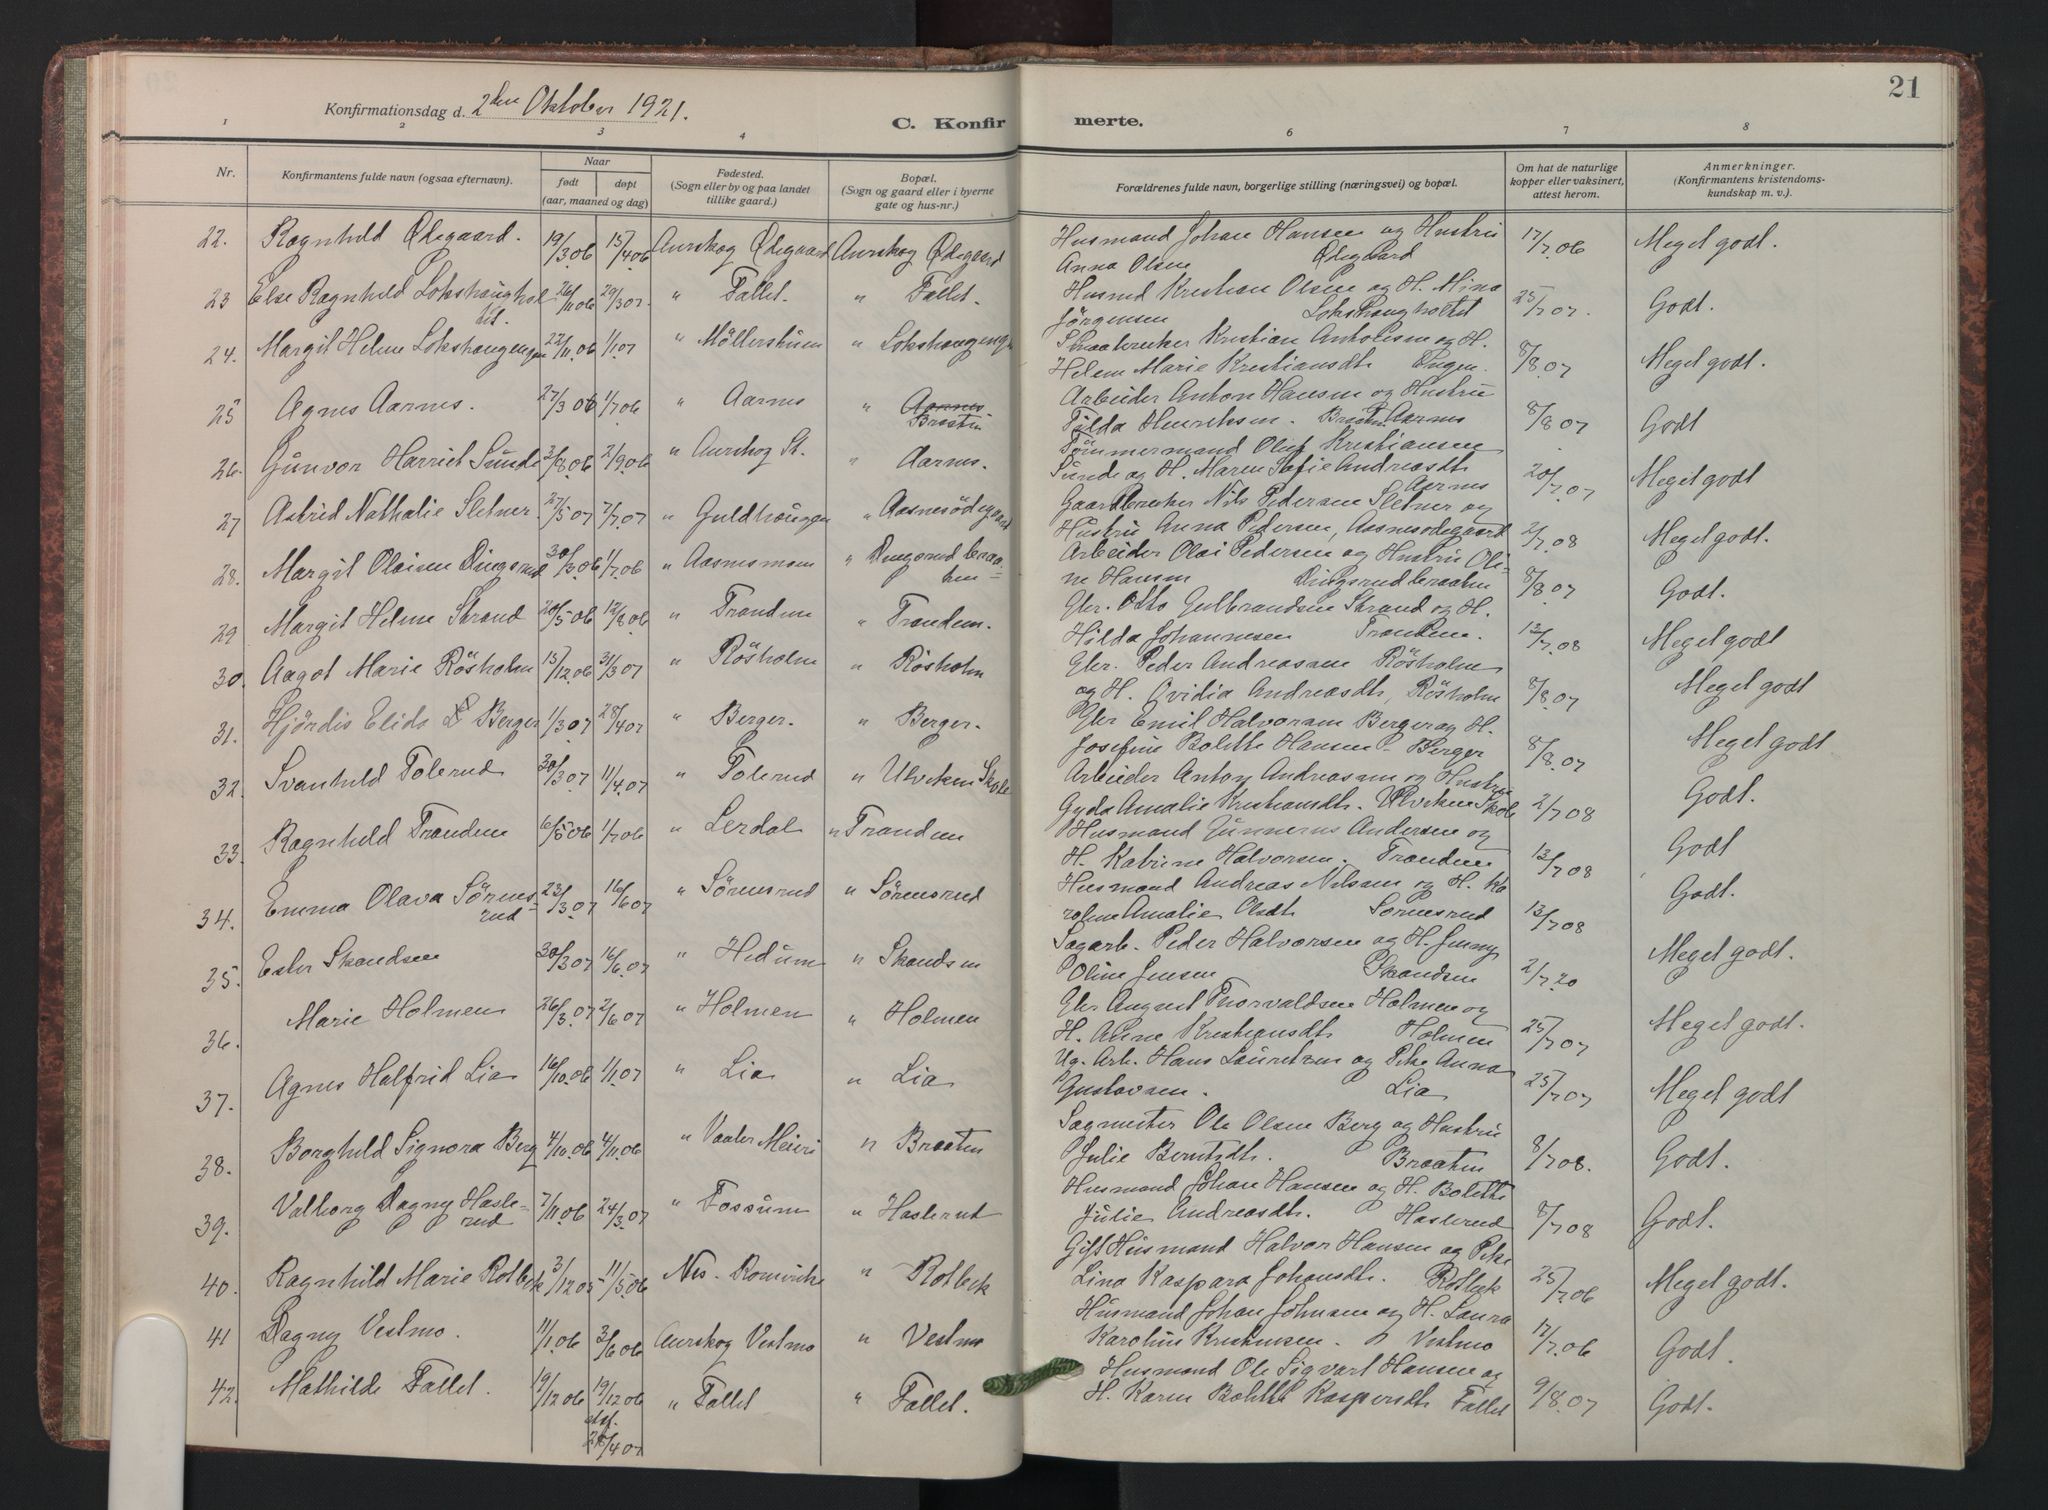 21
Konfirmationsdag d. 2den Oktober 1921.
C. Konfirmerte.
1 2 3 4 6 7 8
Nr. Konfirmantens fulde navn (ogsaa efternavn). Naar født døpt (aar, maaned og dag) Fødested. (Sogn eller by og paa landet tillike gaard.) Bopæl. (Sogn og gaard eller i byerne gate og hus-nr.) Forældrenes fulde navn, borgerlige stilling (næringsvei) og bopæl. Om hat de naturlige kopper eller vaksinert, attest herom. Anmerkninger. (Konfirmantens kristendomskundskap m. v.).
22. Ragnhild Ødegaard. 19/3.06 15/4.06 Aurskog Ødegaard Aurskog Ødegaard Husmand Johan Hansen og Hustru 17/7.06 Meget godt.
Anna Olsen Ødegaard
23 Else Ragnhild Lokshaughol 26/11 06 29/3 07. " Fallet. " Fallet. Husmd Kristian Olsen og H. Mina 25/7 07. Godt.
tet. Jørgensen Lokshaugholtet
24. Margit Helene Lokshaugengen 22/11.06 1/1.07 " Möllerstuen " Lokshaugengen Skraaberker Kristian Antonsen og H. 8/8.07 Meget godt.
Helene Marie Kristiansdt. Engen.
25 Agnes Aarnes. 27/3 06 1/7.06 " Aarnes " Aarnes. Arbeider Anton Hansen og Hustru 8/8 07 Godt
Braaten Tilda Henriksen. Aarnes
26. Gunvor Harriet Sunde 3/8.06 2/9.06 " Aurskog St. " Aarnes. Tømmermand Oluf Kristiansen 20/7.07 Meget godt
Sunde og H. Maren Sofie Andreasdt. Aarnes
27 Astrid Nathalie Sletner 27/5 07 7/7.07 " Guldhaugen " Aasnesødegaard Gaardbruker Nils Pedersen Sletner og 2/7.08 Meget godt.
Hustru Anna Pedersen, Aasnesødegaard
28. Margit Olaisen Dingsrud 30/3.06 1/7.06 " Aasnesmoen " Dingsrudbraa- Arbeider Olai Pedersen og Hustru Oli- 8/8.07 Godt.
ten ne Hansen Dingsrudbraaten
29 Margit Helene Strand 20/5 06 12/8.06 " Trandem " Trandem. Gbr. Otto Gulbrandsen Strand og H. 13/7.08 Meget godt
Hilda Johannesen Trandem.
30. Aagot Marie Rösholm 15/12.06 31/3 07 " Rösholm " Rösholm Gbr. Peder Andreassen Rösholm 8/8.07 Meget godt
og H. Ovidia Andreasdt. Rösholm
31. Hjördis Elida Berger 1/3.07 28/4 07 " Berger. " Berger. Gbr Emil Halvorsen Berger og H. 8/8.07 Meget godt
Josefine Bolette Hansen Berger
32. Svanhild Tolerud 30/3.07 11/4.07 " Tolerud " Ulviken Skole Arbeider Anton Andreassen og Hustru 2/7 08 Godt.
Gyda Amalie Kristiansdt. Ulviken Skole
33. Ragnhild Trandem 6/5 06 1/7.06 " Lerdal " Trandem Husmand Gunnerus Andersen og 13/7 08 Godt
H. Katrine Halvorsen. Trandem
34. Emma Olava Sörens- 23/3.07 16/6 07 " Sörensrud " Sörensrud Husmand Andreas Nilsen og H. Ka 13/7 08 Godt.
rud roline Amalie Olsdt. Sörensrud
35. Ester Skandsen 30/3 07 16/6.07 " Hedum " Skandsen Sagarb. Peder Halvorsen og H. Jenny 2/7.20 Meget godt.
Oline Jensen Skandsen
36. Marie Holmen 26/3.07 2/6 07 " Holmen " Holmen Gbr August Thorvaldsen Holmen og 25/7 07 Meget godt.
H. Anne Kristiansdt. Holmen
37. Agnes Halfrid Lia 16/10.06 1/1.07 " Lia " Lia Ug. Arb. Hans Lauritzen og Pike Anna 25/7 07 Meget godt
Gustavsen. Lia
38. Borghild Signora Berg 4/10.06 4/11.06 " Vaaler Meieri " Braaten Sagmester Ole Olsen Berg og Hustru 8/7 08. Godt.
Julie Berntsdt. Braaten
39. Valborg Dagny Hasle- 7/11.06 24/3.07 " Fossum " Haslerud Husmand Johan Hansen og H. Bolette 8/7 08 Godt.
rud Julie Andreasdt. Haslerud
40. Ragnhild Marie Rotbeck 3/12 05 11/5.06 Nes. Romerike " Rotbeck Gift Husmand Halvor Hansen og Pike 25/7.06 Meget godt.
Lina Kaspara Johansdt. Rotbeck
41 Dagny Vestmo. 11/1.06 3/6 06 Aurskog Vestmo " Vestmo Husmand Johan Johnsen og H. Laura 17/7.06 Godt.
Karoline Kristensen. Vestmo
42. Mathilde Fallet. 19/12 06 19/12 06 " Fallet " Fallet. Husmand Ole Sigvart Hansen og 9/8.07 Godt.
stsf. H. Karen Bolette Kaspersdt. Fallet
28/4 07